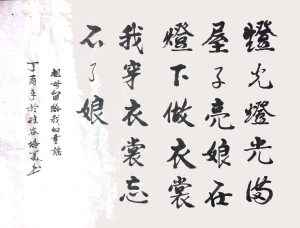 燈光燈光满
屋子亮娘在
燈下做衣裳
我穿衣裳忘
不了娘
祖母留给我的童謠
丁酉年於